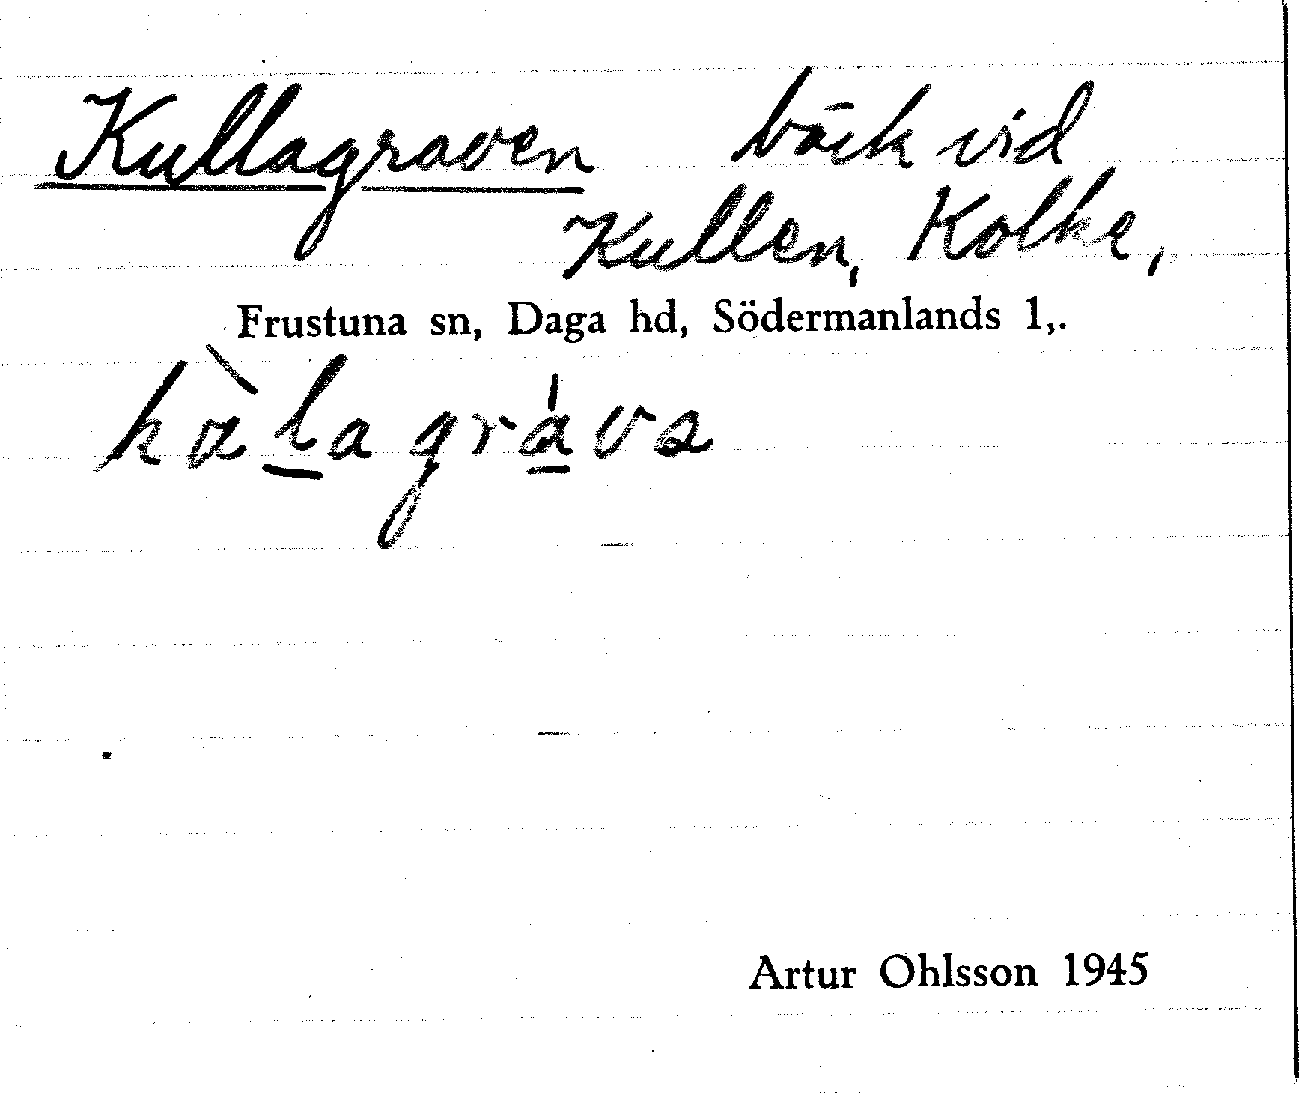 Kullagraven bäck vid
Kullen, Kolke,
Frustuna sn, Daga hd, Södermanlands l,.
Artur Ohlsson 1945